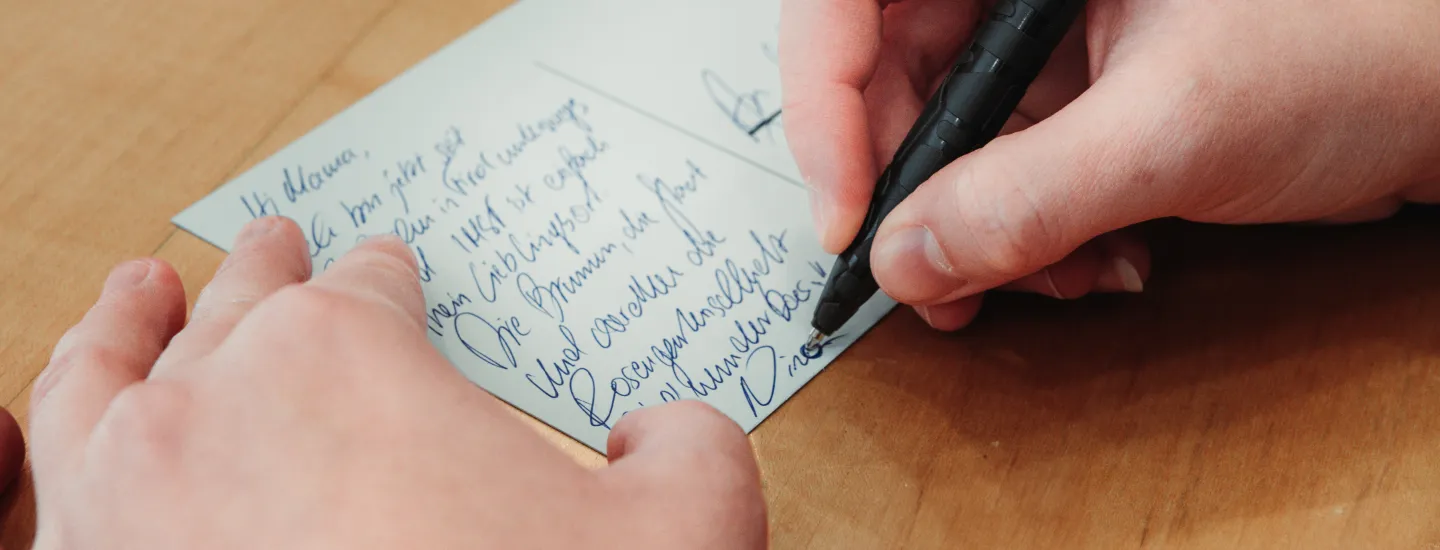 Hi Mama,
ich bin jetzt seit
in Tirol unterwegs
IMST ist einfach
mein Lieblingsort.
Die Brunnen, die Stadt
und vor allem die
Rosengartenschlucht
wunderbar!!
Nina
An